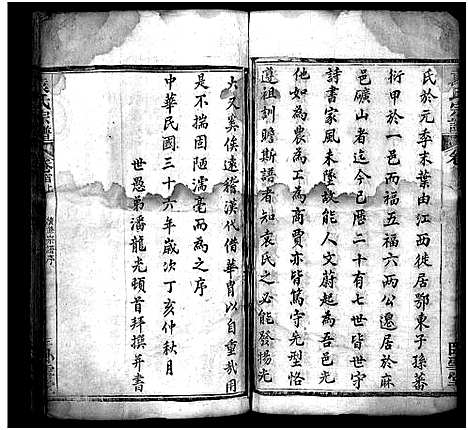 氏於元季末葉由江西徙居鄂東子孫蕃
衍甲於一邑而福五福六兩公遷居於麻
邑礦山者迄今已曆二十有七世皆世守
詩書家風未墜故能人文蔚起為邑光
他如為農為工為商賈亦皆篤守先型恪
遵祖訓瞻斯語者知袁氏之必能發揚光
大又奚俟遠稽漢代借華胄以自重哉用
是不揣固陋濡毫而為之序
中華民國三十六年歲次丁亥仲秋月
世愚弟潘龍光頓首拜撰并書
袁氏宗譜
卷首上